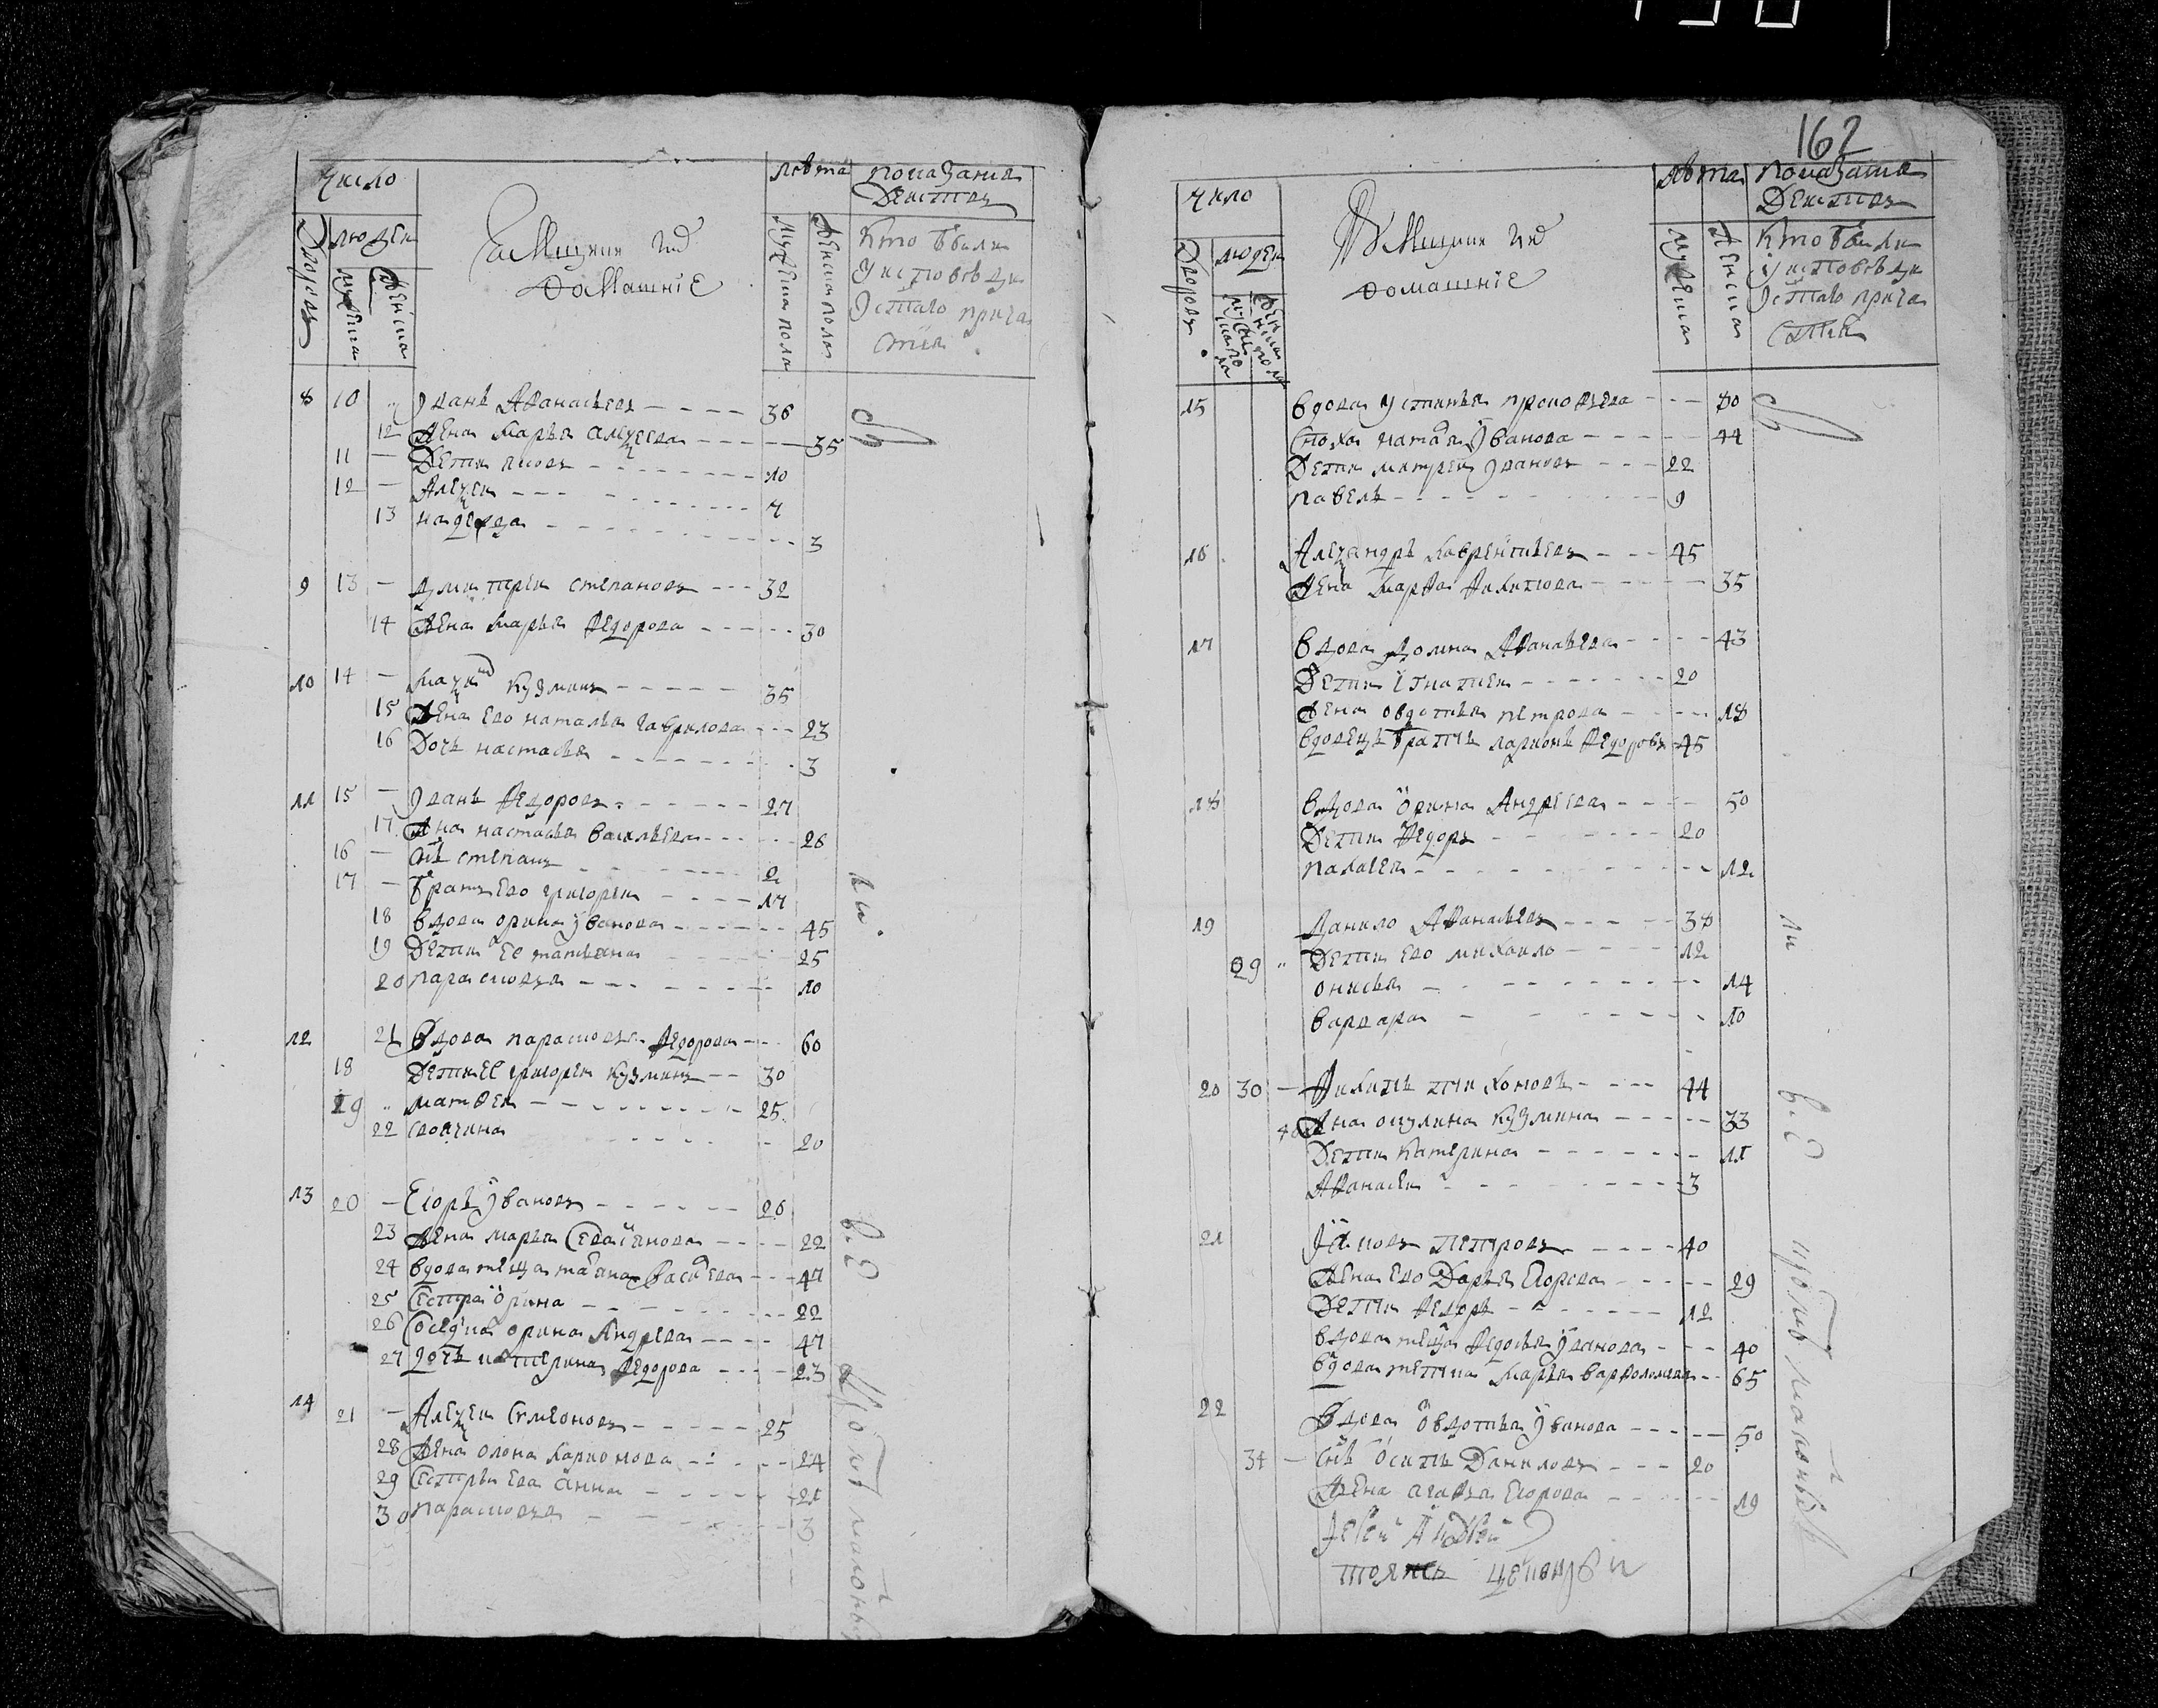 число
лѣта
показание
действъ
дворовъ
людеи
мужеска
женска
помещики их
домашние
мужеска пола
женска пола
кто были
у исповеди
и стаго прича
стия
8 10 Иванъ Афанасьевъ 36
12 Жена Марья Алеѯеева 35
11 Дети Яковъ 10
12 Алеѯеи 7
13 надежда 3
9 13 Дмитреи степановъ 32
14 Жена Марья Федорова 30
10 14 Маѯим Кузминъ 35
15 Жена ево наталья гаврилова 23
16 Дочь настасья 3
11 15 Иванъ Федоровъ 27
17 Жна настасья васильева 26
16 Снъ степанъ 2
17 братъ ево григореи 17
18 вдова орина Иванова 45
19 Дети ее татьяна 25
20 парасковья 10
12 21 вдова парасковья Федорова 60
18 Дети ее григореи Кузминъ 30
19 матвеи 25
22 20
13 20 Егоръ Ивановъ 26
23 Жена марья 22
24 вдова теща татьяна васильева 47
25 Сестра орина 22
26 орина Андреева 47
27 Дочь катерина Федорова 23
14 21 Алеѯеи Симеоновъ 25
28 Жена олона Ларионова 24
29 Сестры ева анна 21
30 парасковья 3
162
число
лѣта
показание
действъ
дворовъ
людеи
мужеска пола
женска пола
помещики их
домашние
мужеска
женска
кто были
у исповеди
и стаго прича
стия
15 вдова устинья прокофьева 80
Сноха наталья Иванова 44
Дети матреи Ивановъ 22
павелъ 9
16 Алеѯандръ Лаврентьевъ 45
Жена Марфа Филипова 35
17 вдова Домна Афанасьева 43
Дети Игнатеи 20
Жена овдотья петрова 18
вдовецъ братъ ларионъ Федоровъ 45
18 вдова орина Андреева 50
Дети Федоръ 20
палагея 12
19 Данило Афанасьевъ 38
29 Дети ево михаило 12
онисья 14
варвара 10
20 30 Филипъ тихоновъ 44
40 Жна окулина Кузмина 33
Дети Катерина 11
Афанасеи 3
21 Яковъ Петровъ 40
Жена ево Дарья Егорова 29
Дети Федоръ 12
вдова теща Федосья Иванова 40
вдова тетка Марья варфоломеева 65
22 вдова овдотья Иванова 50
31 Снъ осипъ Даниловъ 20
Жена агафья Егорова 19
Иереи Андреи
тояжъ церкви